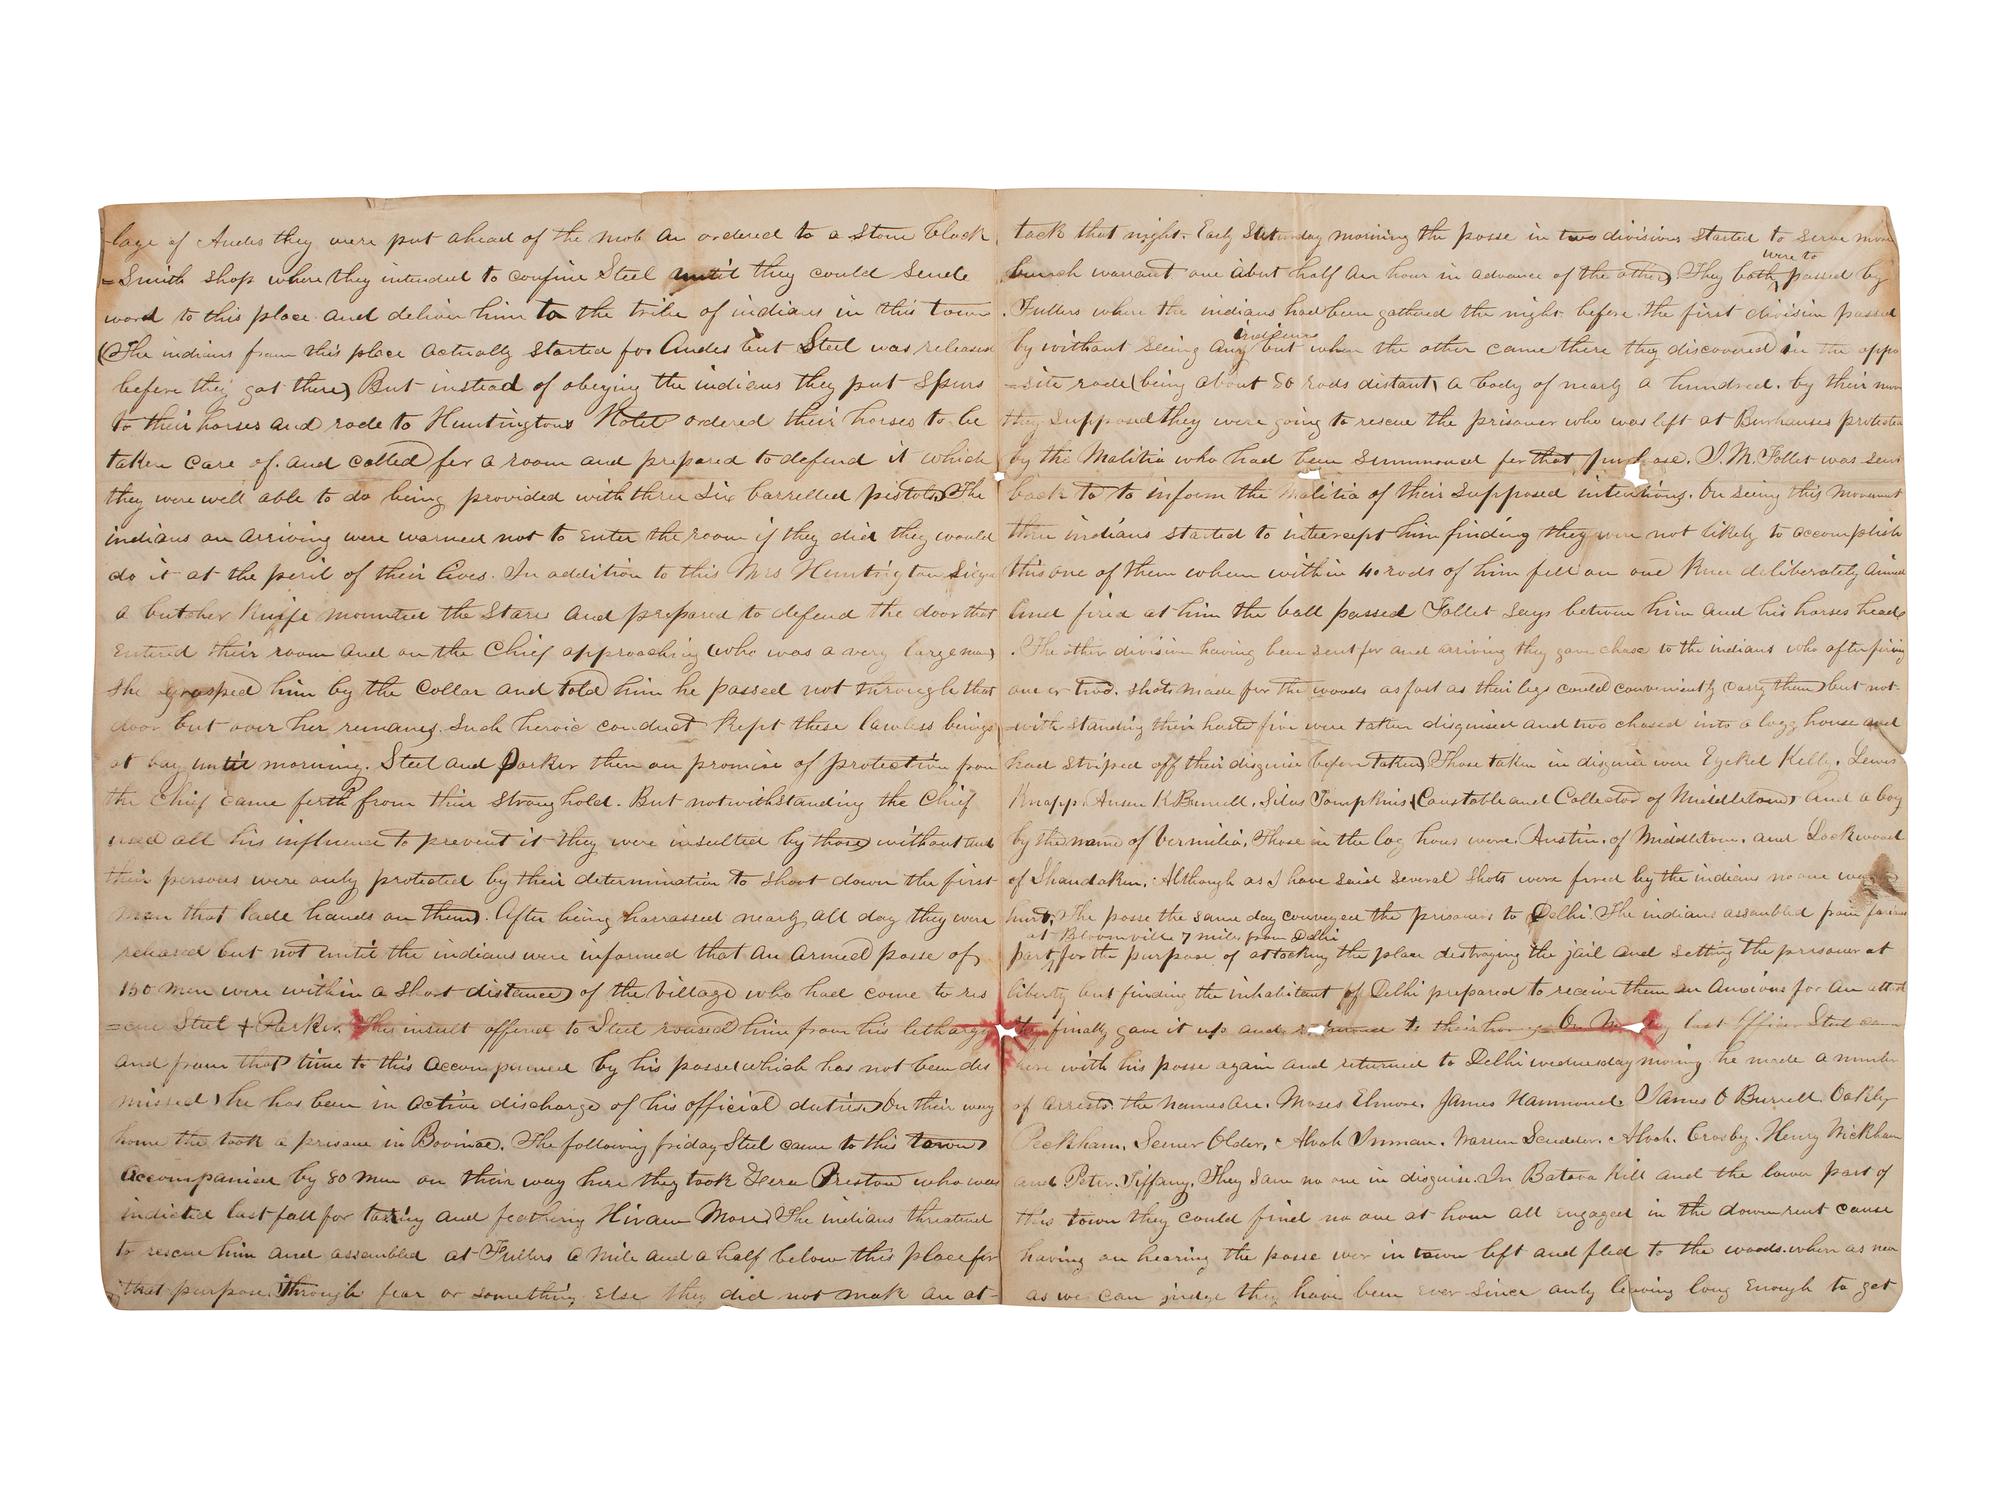 lage of Andes they were put ahead of the mob an ordered to a stone black
=Smith shop where they intended to confine Steel until they could sende
word to this place and deliver him to the tribe of indians in this town
(The indians from this place actually started for Andes but Steel was released
before they got there) But instead of obeying the indians they put spurs
to their horses and rode to Huntingtons Hotel ordered their horses to be
taken care of. and called for a room and prepared to defend it which
they were well able to do being provided with three six barrelled pistols. The
indians on arriving were warned not to enter the room if they did they would
do it at the peril of their lives. In addition to this Mrs Huntington
a butcher Knife mounted the Stars and prepared to defend the door that
entered their room and on the Chief approaching (who was a very large man)
she grasped him by the Collar and told him he passed not through that
door but over her remanes. Such heroic conduct kept these lawless beings
at bay until morning. Steel and Parker then on promise of protection from
the Chief came forth from their stronghold. But notwithstanding the Chief
used all his influence to prevent it they were insulted by those without and
their persons were only protected by their determination to shoot down the first
man that lade hands on them. After being harrassed nearly all day they were
released but not until the indians were informed that an armed posse of
150 men were within a short distance of the village who had come to res
=cue Steel & Parker. This insult offered to Steel roused him from his lethargy
and from that time to this accompanied by his posse (which has not been dis
missed) he has been in active discharge of his official duties. On their way
home the took a prisone in Bovina. The following friday Steel came to this town
accompanied by 80 men on their way here they took Preston who was
indicted last fall for taring and feathering Hiram More. The indians threatned
to rescue him and assembled at Fullers a mile and a half below this place for
that purpose. through fear or something else they did not mak an at-
tack that night. Early Saturday morning the posse in two divisions started to serve more
bench warrant one about half an hour in advance of the other. They both
were to
passed by
Fullers where the indians had been gathered the night before. the first division passed
by without seeing any
indians
but when the other came there they discovered in the oppo
=site rode (being about 80 rods distant) a body of nearly a hundred. by their
they supposed they were going to rescue the prisoner who was left at Burhanses protected
by the Malitia who had been summoned for that purpose. I.M. Follet was sent
back to to inform the Malitia of their supposed intentions. On seeing this movement
three indians started to intercept him finding they were not likely to accomplish
this one of them when within 40 rods of him fell on one Knee deliberately aimed
and fired at him the ball passed Follet says between him and his horses head
. The other division having been sent for and arriving they gave chase to the indians who after firing
one or two. shots made for the woods as fast as their legs could conveniently carry them but not-
with standing their haste five were taken disguised and two chased into a logg house and
had striped off their disguise (before taken) Those taken in disguise were Ezekel Kelly. Lewis
Knapp. Anson K Burrell. Silas Tompkins (Constable and Collector of Middletown) and a boy
by the name of Vermilia. Those in the log hous were. Austin. of Middletown. and Lockwood
of Shandaken. Although as I have said several shots were fired by the indians no one was
hurt. The posse the same day conveyed the prisoners to Delhi. The indians assembled from
at Bloomville 7 miles from Delhi
part for the purpose of attacking the place destroying the jail and setting the prisoner at
liberty but finding the inhabitant of Delhi prepared to receive them an anxious for an
they finally gave it up and to their homes. On last Officer Steel
here with his posse again and returned to Delhi wednesday morning he made a number
of arrests. the names are. Moses Elmore. James Hammond. James O Burrell. Oakly
Peckham. Older. Alvah Inman. Warren Scudder. Alvah. Crosby. Henry Wickham
and Peter. Tiffany. They Saw no one in disguise. In Batava Kill and the lower part of
this town they could find no one at home all engaged in the down rent cause
having on hearing the posse wer in town left and fled to the woods. when as near
as we can judge they have been ever since only leaving long enough to get